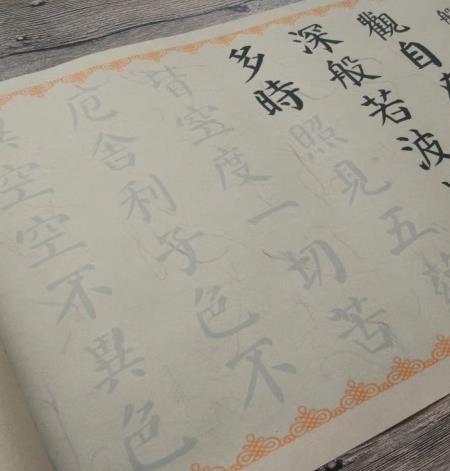 觀自
深般若波
多時照見五蘊
皆空度一切苦
厄舍利子色不
異空空不異色